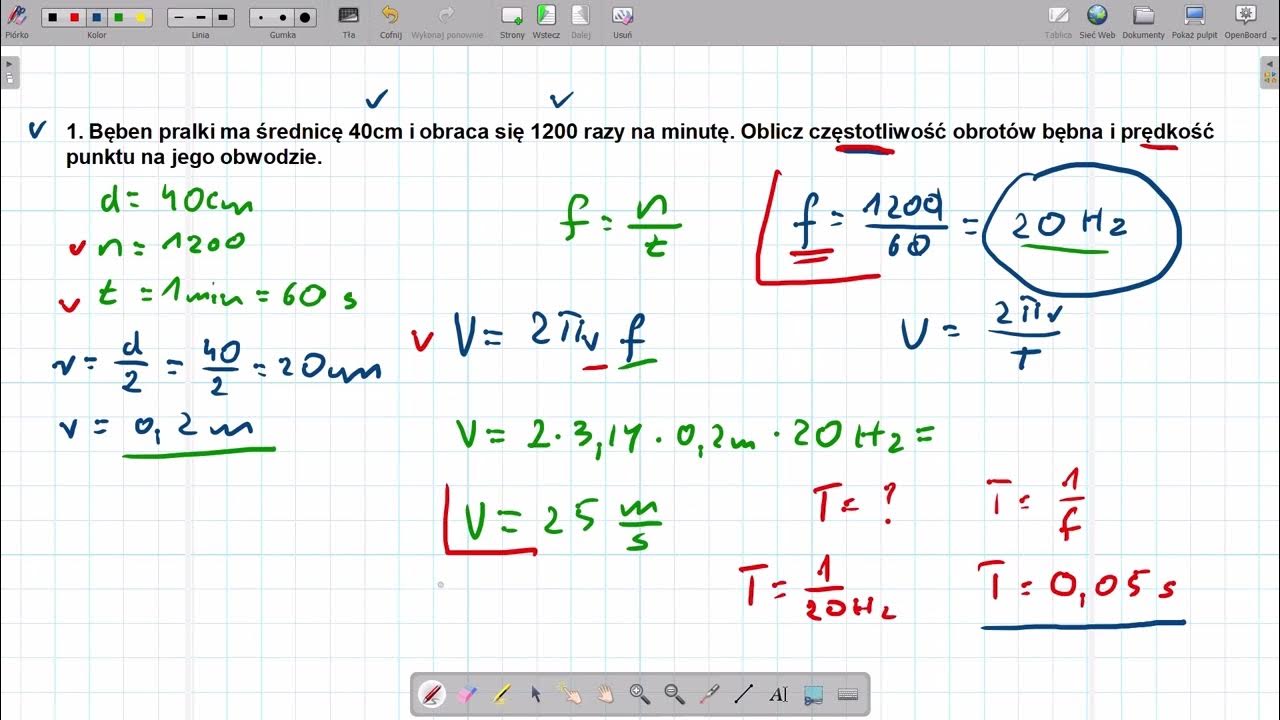 Piórko Kolor Linia Gumka Tła Cofnij Wykonaj ponownie Strony Wstecz Dalej Usuń Tablica Sieć Web Dokumenty Pokaż pulpit OpenBoard
1. Bęben pralki ma średnicę 40cm i obraca się 1200 razy na minutę. Oblicz częstotliwość obrotów bębna i prędkość
punktu na jego obwodzie.
d = 40cm
n = 1200
t = 1 min = 60 s
r = d/2 = 40/2 = 20cm
r = 0,2 m
f = n/t
f = 1200/60 = 20 Hz
V = 2πr f
V = 2πr/T
V = 2 · 3,14 · 0,2m · 20 Hz =
V = 25 m/s
T = ?
T = 1/f
T = 1/20Hz
T = 0,05 s
AI